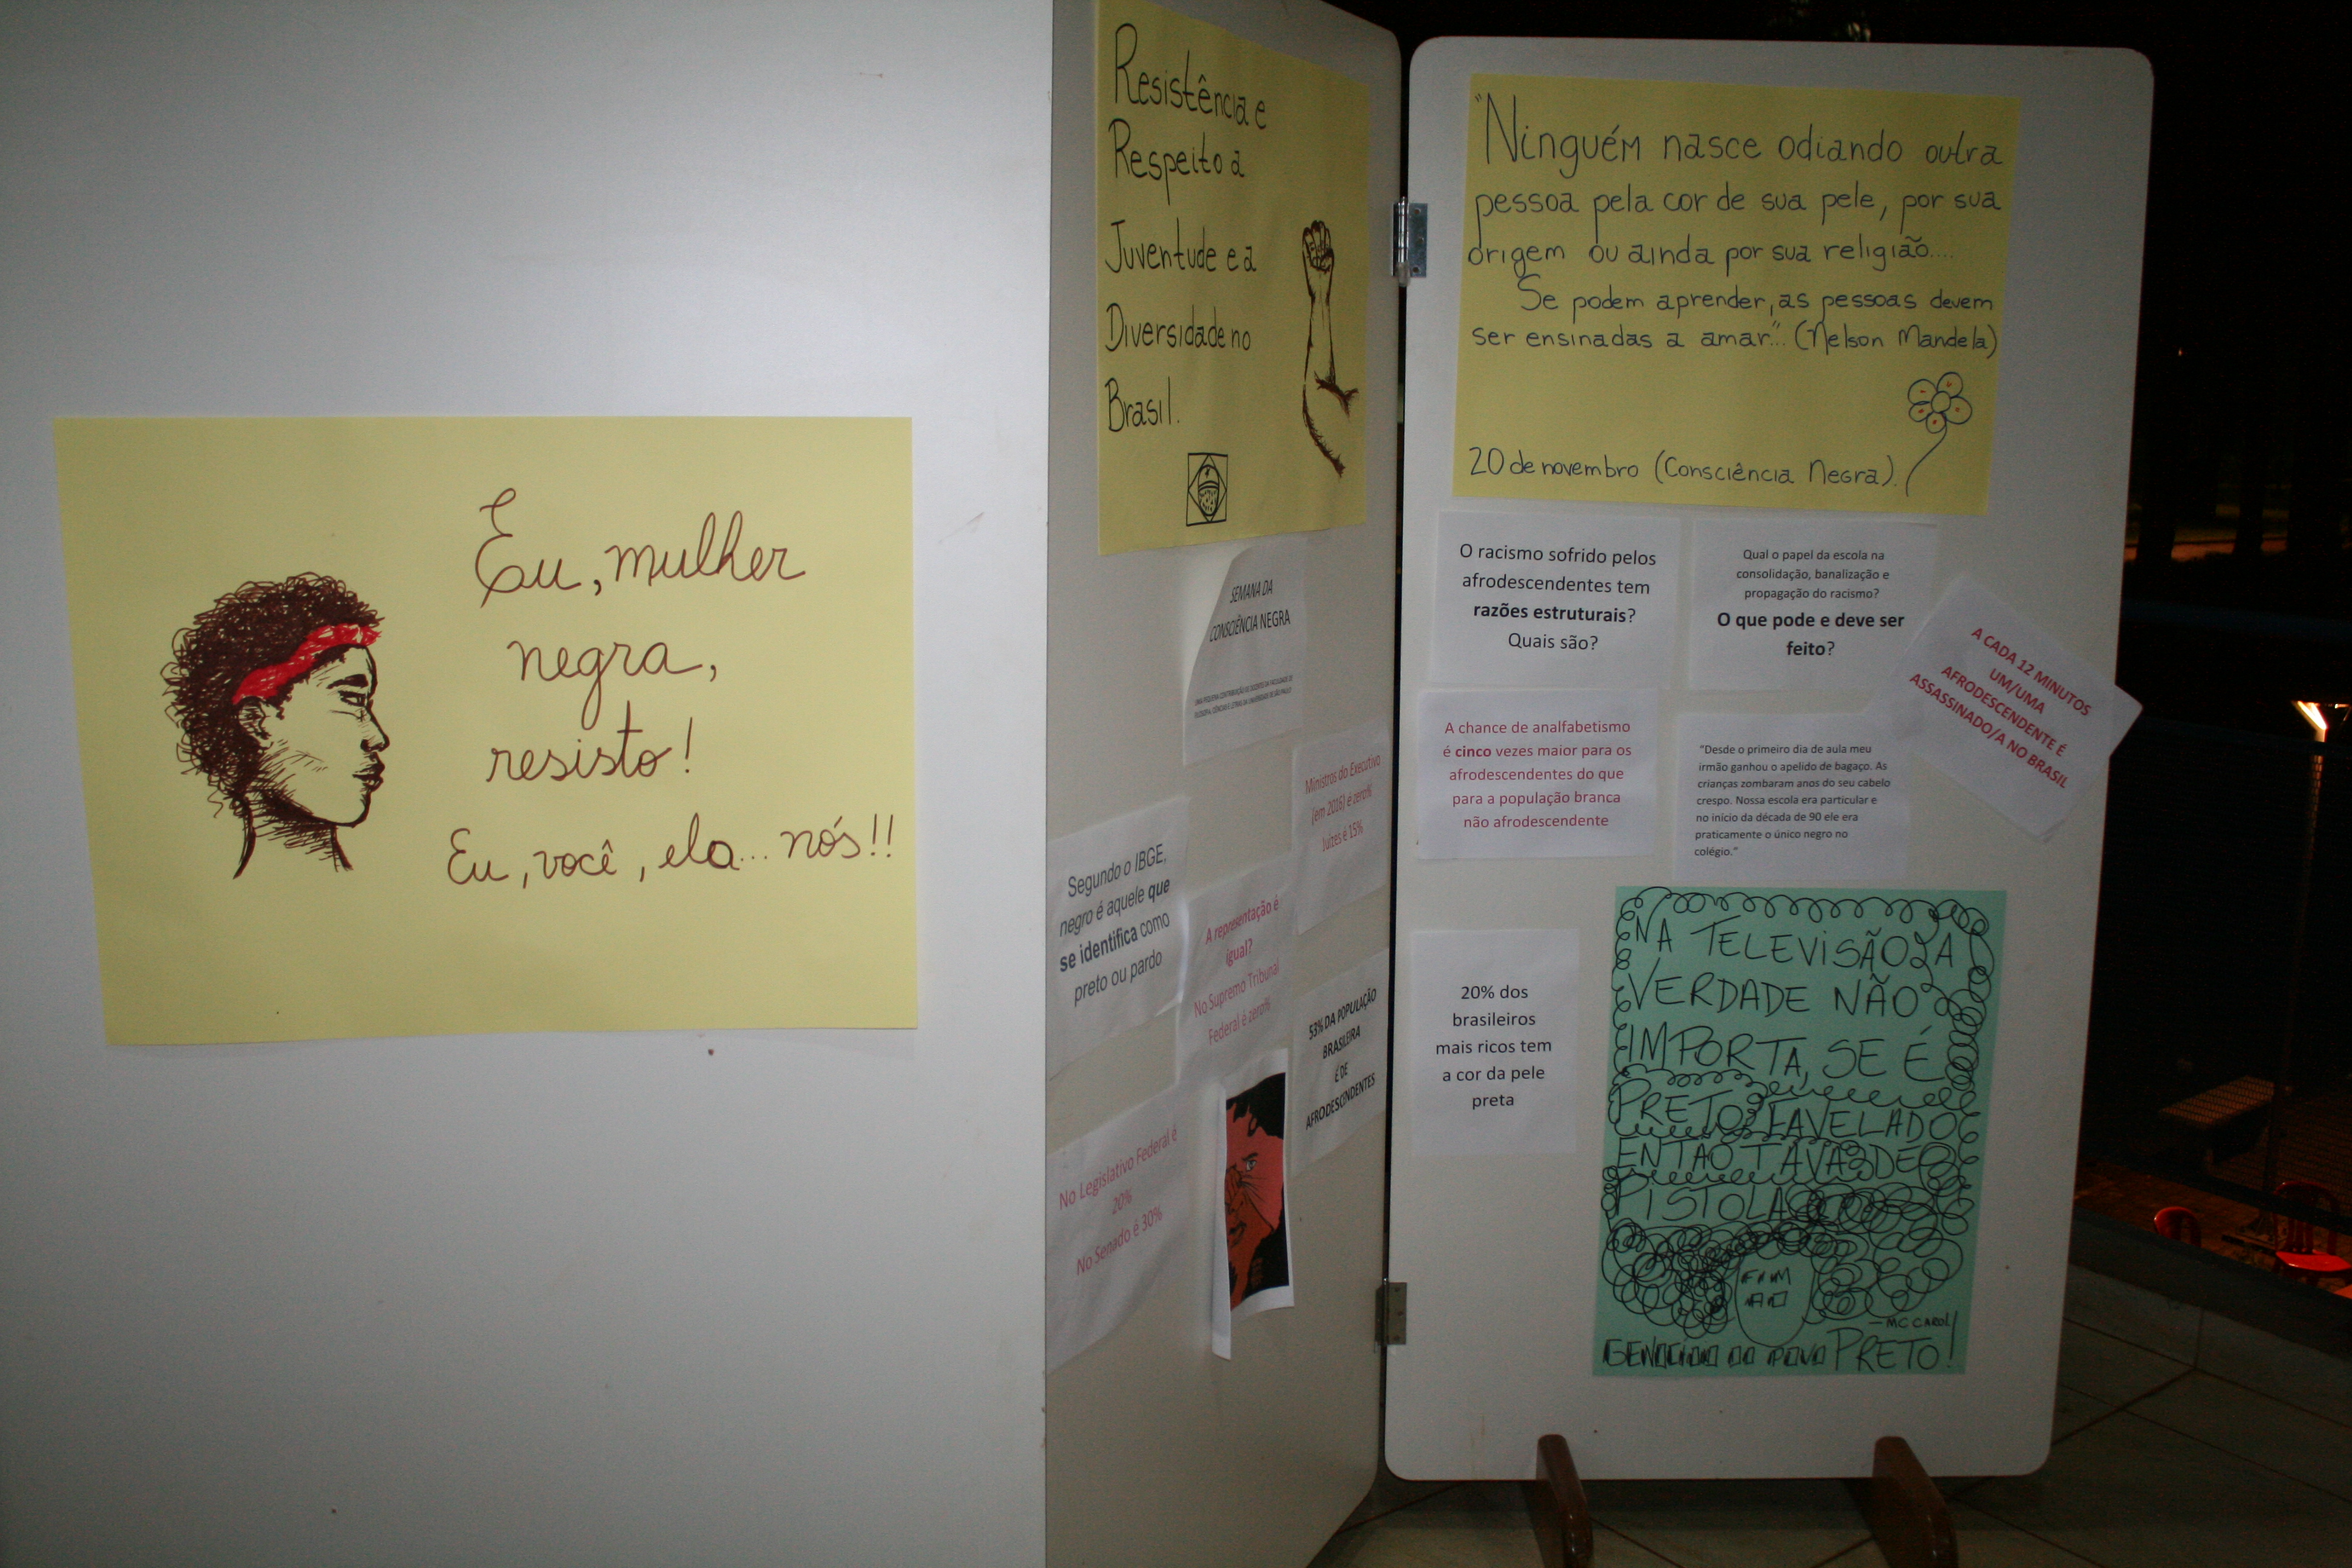 Eu, mulher
negra,
resisto!
Eu, você, ela... nós!!
Resistência e
Respeito a
Juventude e a
Diversidade no
Brasil.
SEMANA DA
CONSCIÊNCIA NEGRA
UMA PEQUENA CONTRIBUIÇÃO DE DOCENTES DA FACULDADE DE
FILOSOFIA, CIÊNCIAS E LETRAS DA UNIVERSIDADE DE SÃO PAULO
Ministros do Executivo
(em 2016) é zero%
Juízes é 15%
Segundo o IBGE,
negro é aquele que
se identifica como
preto ou pardo
A representação é
igual?
No Supremo Tribunal
Federal é zero%
53% DA POPULAÇÃO
BRASILEIRA
É DE
AFRODESCENDENTES
No Legislativo Federal é
20%
No Senado é 30%
"Ninguém nasce odiando outra
pessoa pela cor de sua pele, por sua
origem ou ainda por sua religião....
Se podem aprender, as pessoas devem
ser ensinadas a amar"... (Nelson Mandela)
20 de novembro (Consciência Negra).
O racismo sofrido pelos
afrodescendentes tem
razões estruturais?
Quais são?
Qual o papel da escola na
consolidação, banalização e
propagação do racismo?
O que pode e deve ser
feito?
A CADA 12 MINUTOS
UM/UMA
AFRODESCENDENTE É
ASSASSINADO/A NO BRASIL
A chance de analfabetismo
é cinco vezes maior para os
afrodescendentes do que
para a população branca
não afrodescendente
"Desde o primeiro dia de aula meu
irmão ganhou o apelido de bagaço. As
crianças zombaram anos do seu cabelo
crespo. Nossa escola era particular e
no início da década de 90 ele era
praticamente o único negro no
colégio."
20% dos
brasileiros
mais ricos tem
a cor da pele
preta
NA TELEVISÃO A
VERDADE NÃO
IMPORTA, SE É
PRETO, FAVELADO
ENTÃO TAVA DE
PISTOLA
— MC CAROL
GENOCIDIO DO POVO PRETO!